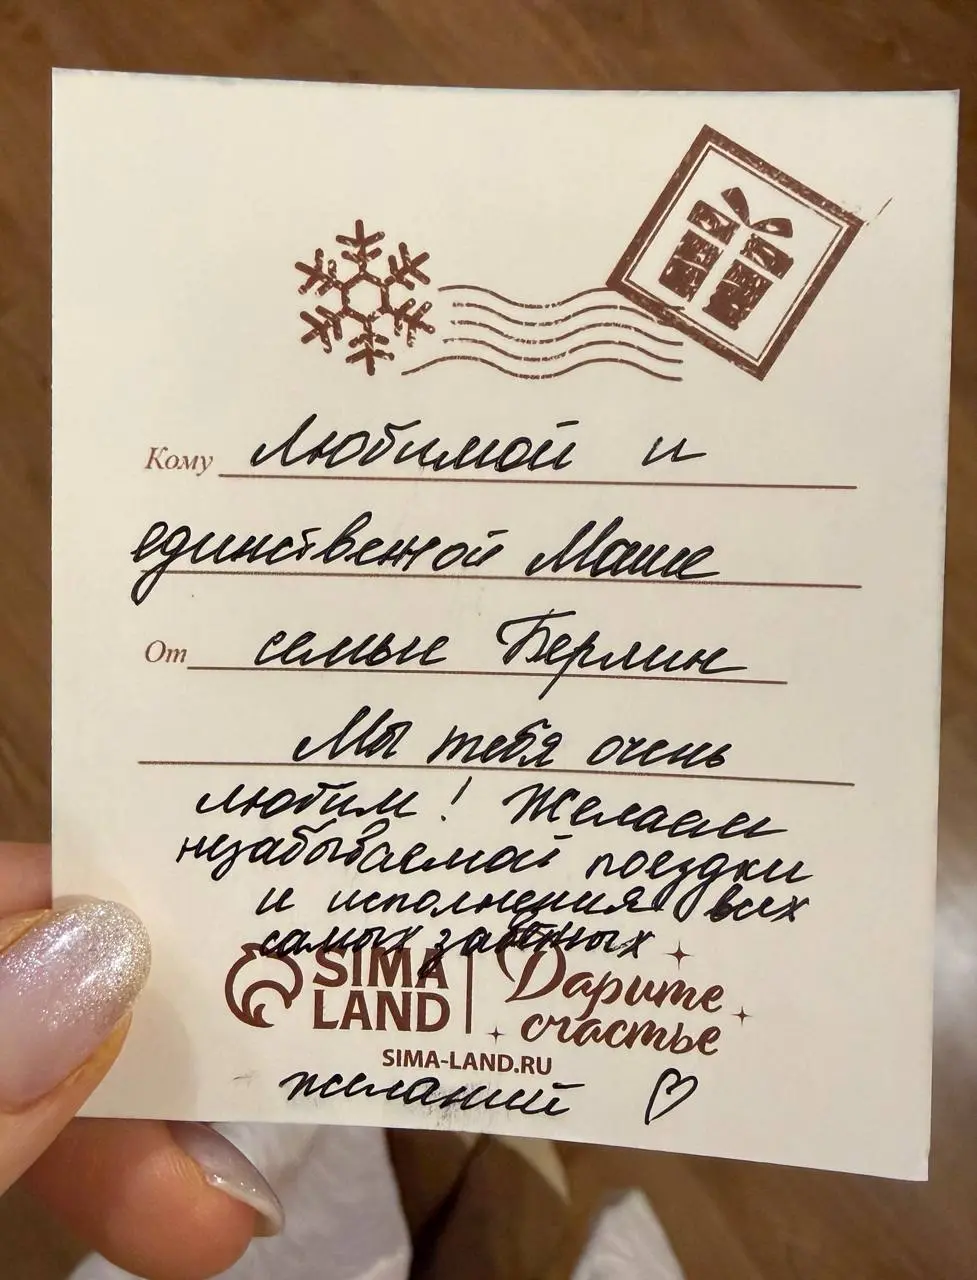 Кому Любимой и
единственной Маше
От семьи Берлин
Мы тебя очень
любим! Желаем
незабываемой поездки
и исполнения всех
самых заветных
SIMA LAND | Дарите счастье
SIMA-LAND.RU
желаний ♡